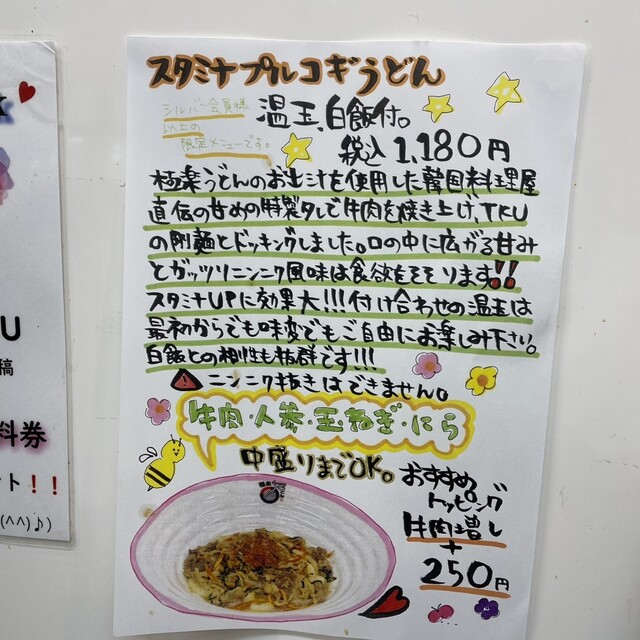 スタミナプルコギうどん
シルバー会員様
以上の
限定メニューです。
温玉、白飯付。
税込1,180円
極楽うどんのお出汁を使用した韓国料理屋
直伝の甘めの特製タレで牛肉を焼き上げ、TKU
の剛麺とドッキングしました。口の中に広がる甘み
とガッツリニンニク風味は食欲をそそります!!
スタミナUPに効果大!!!付け合わせの温玉は
最初からでも味変でもご自由にお楽しみ下さい。
白飯との相性も抜群です!!!
ニンニク抜きはできません。
牛肉・人参・玉ねぎ・にら
中盛りまでOK。
おすすめ
トッピング
牛肉増し
+
250円
U
稿
料券
ト!!
(^^)♪)